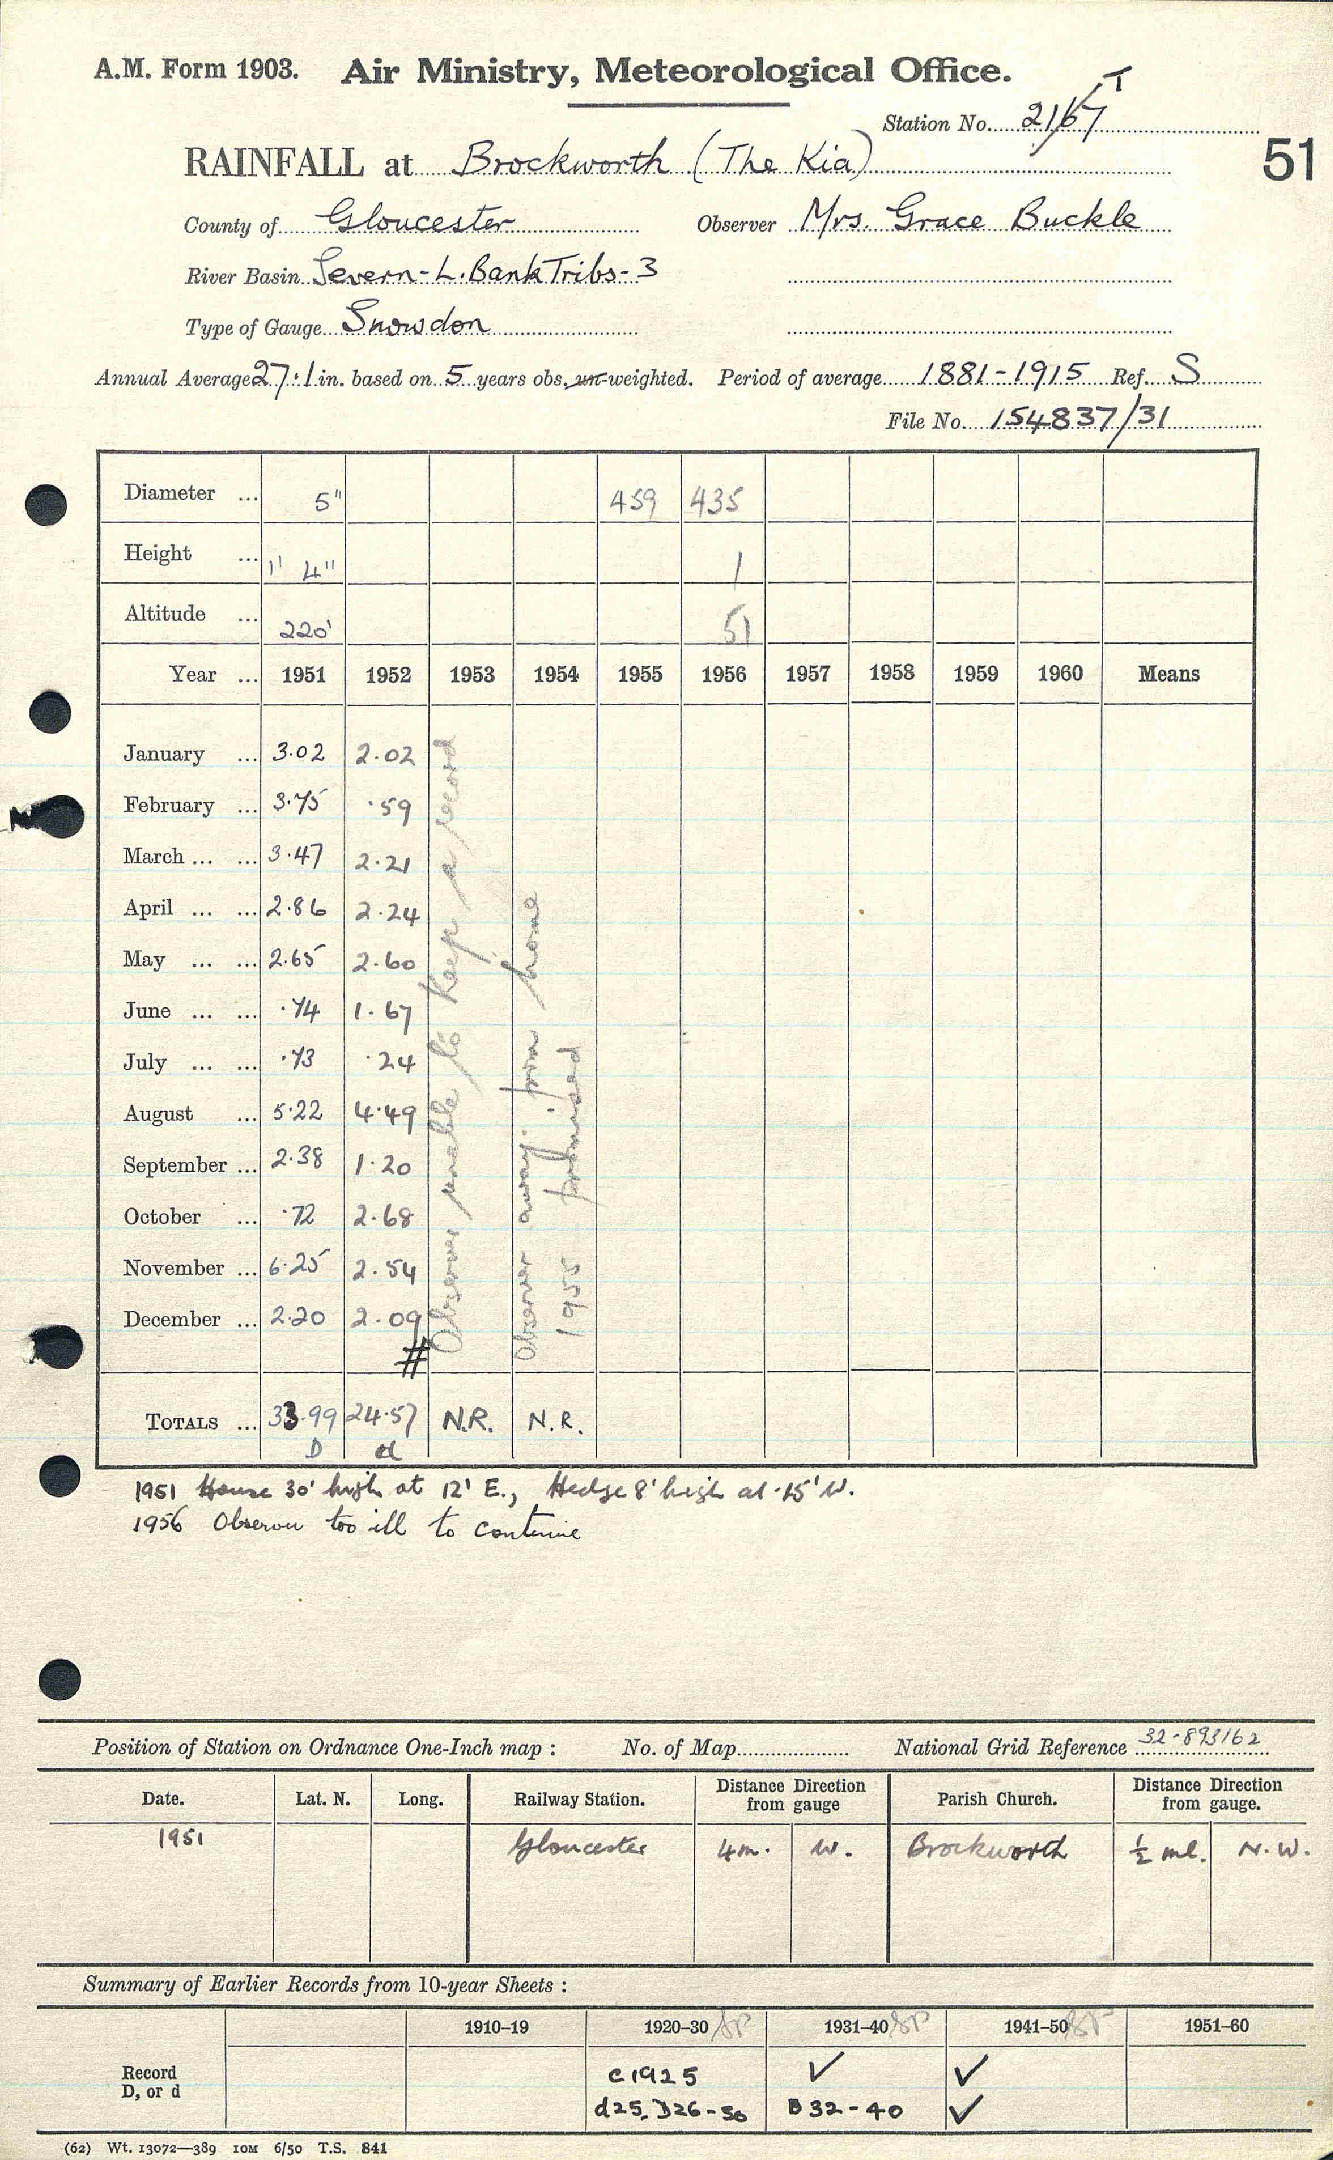 A.M. Form 1903. Air Ministry, Meteorological Office.
Station No. 2167 T
RAINFALL at Brockworth (The Kia)
51
County of Gloucester Observer Mrs. Grace Buckle
River Basin Severn - L. Bank Tribs - 3
Type of Gauge Snowdon
Annual Average 27.1 in. based on 5 years obs. un-weighted. Period of average 1881-1915 Ref. S
File No. 154837/31
Diameter ... 5" 459 435
Height ... 1' 4" 1
Altitude ... 220' 51
Year ... 1951 1952 1953 1954 1955 1956 1957 1958 1959 1960 Means
January ... 3.02 2.02
February ... 3.75 .59
March ... ... 3.47 2.21
April ... ... 2.86 2.24
May ... ... 2.65 2.60
June ... ... .74 1.67
July ... ... .73 .24
August ... 5.22 4.49
September ... 2.38 1.20
October ... .72 2.68
November ... 6.25 2.54
December ... 2.20 2.09
#
Observer unable to keep a record
Observer away from home
1955 promised
TOTALS ... 33.99 24.57 N.R. N.R.
D d
1951 House 30' high at 12' E., Hedge 8' high at 15' W.
1956 Observer too ill to continue
Position of Station on Ordnance One-Inch map : No. of Map National Grid Reference 32-893162
Date. Lat. N. Long. Railway Station. Distance Direction from gauge Parish Church. Distance Direction from gauge.
1951 Gloucester 4m. W. Brockworth ½ ml. N.W.
Summary of Earlier Records from 10-year Sheets :
1910–19 1920–30 1931–40 1941–50 1951–60
Record c1925 ✓ ✓
D, or d d25. D26-30 D32-40 ✓
(62) Wt. 13072—389 10M 6/50 T.S. 841